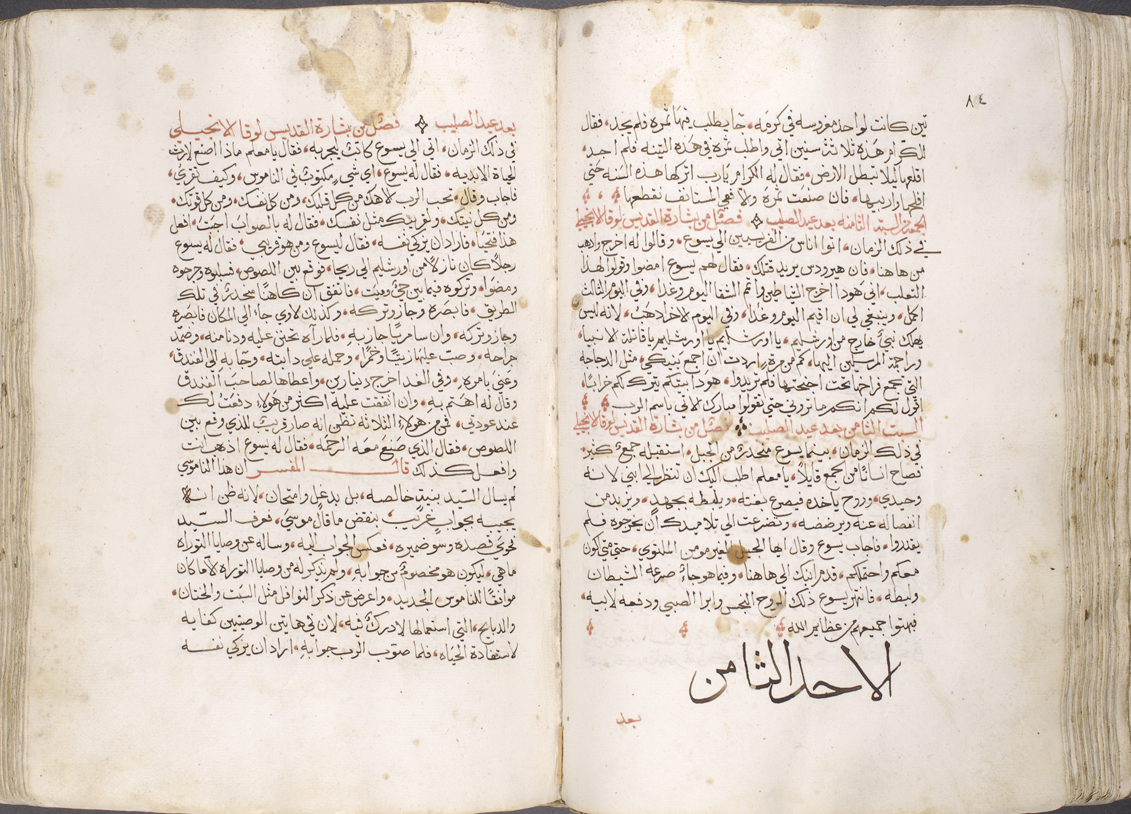 ٨٤
تين كانت لواحد مغروسه في كرمه، جا يطلب فيها ثمرة فلم يجد، فقال
للكرام هذه ثلاثة سنين اتي واطلب ثمرة في هذه التينه فلم اجد،
اقلعها ليلا تبطل الارض، فقال له الكرام يا رب اتركها هذه السنه حتى
افلحها وازبلها، فان صنعت ثمرة ولا ففي المستانف نقطعها
الجمعه السبه الثامنه بعد عيد الصليب فصل من بشارة القديس لوقا الانجيلي
في ذلك الزمان، اتوا اناس من الفريسيين الي يسوع، وقالوا له اخرج واذهب
من هاهنا، فان هيرودس يريد قتلك، فقال لهم يسوع امضوا وقولوا لهذا
الثعلب، اني هوذا اخرج الشياطين واتم الشفا اليوم وغدا، وفي اليوم الثالث
اكمل، وينبغي لي ان اقيم اليوم وغدا، وفي اليوم لاخر اذهب، لانه ليس
يهلك نبي خارج من اورشليم، يا اورشليم يا اورشليم يا قاتلة الانبيا،
وراجمة المرسلين اليها، كم من مرة اردت ان اجمع بنيكي، مثل الدجاجه
التي تجمع فراخها تحت اجنحتها فلم تريدوا، هوذا بيتكم يترك لكم خرابا،
اقول لكم انكم ما تروني حتى تقولوا مبارك الاتي باسم الرب
السبت الثامن بعد عيد الصليب فصل من بشارة القديس لوقا الانجيلي
في ذلك الزمان، بينما يسوع منحدر من الجبل، استقبله جمع كثير،
فصاح انسانا من الجمع قايلا، يا معلم اطلب اليك ان تنظر الى ابني لانه
وحيدي، وروح ياخذه فيصرع بغته، ويلبطه بجهد، ويزبد من
انفصاله عنه ويرضضه، وتضرعت الي تلاميدك ان يخرجوه فلم
يقدروا، فاجاب يسوع وقال ايها الجيل الغير مومن الملتوي، حتى متى اكون
معكم واحتملكم، قدم ابنك الي هاهنا، وفيما هو جاء صرعه الشيطان
ولبطه، فانتهر يسوع ذلك الروح النجس وابرا الصبي ودفعه لابيه،
فبهتوا جميعهم من عظايم الله
الاحد الثامن
بعد
بعد عيد الصليب فصل من بشارة القديس لوقا الانجيلي
في ذلك الزمان، اتى الى يسوع كاتب ليجربه، فقال يا معلم ماذا اصنع لارث
الحياة الابديه، فقال له يسوع، اي شي مكتوب في الناموس، وكيف تقري،
فاجاب وقال، تحب الرب الاهك من كل قلبك، ومن كل نفسك، ومن كل قوتك،
ومن كل نيتك، وقريبك مثل نفسك، فقال له بالصواب اجبت، افعل
هذا فتحيا، فاراد ان يزكي نفسه، فقال ليسوع ومن هو قريبي، فقال له يسوع
رجلا كان نازلا من اورشليم الي ريحا، فوقع بين اللصوص، فسلبوه وجرحوه
ومضوا، وتركوه فيما بين حي وميت، فاتفق ان كاهنا منحدر في تلك
الطريق، فابصره وجاز وتركه، وكذلك لاوي جا الي المكان فابصره
وجاز وتركه، وان سامريا جاز به، فلما رآه تحنن عليه ودنا منه، وضمد
جراحه، وصب عليها زيتا وخمرا، وحمله على دابته، وجا به الي الفندق
وعنى بامره، وفي الغد اخرج دينارين، واعطاها لصاحب الفندق
وقال له اهتم به، وان انفقت عليه اكثر من هولاء دفعت لك
عند عودتي، فمن هولاء الثلاثه تظن انه صار قريب للذي وقع بين
اللصوص، فقال الذي صنع معه الرحمه، فقال له يسوع اذهب انت
وافعل كذلك قال المفسر ان هذا الناموسي
لم يسال السيد بنيه خالصه، بل بدغل وامتحان، لانه ظن انه
يجيبه بجواب غريب، ينقض ما قال موسى، فعرف السيد
نحوي قصده وسو ضميره، فعكس الجواب اليه، وساله عن وصايا التوراه
ما هي، ليكون هو مخصوم من جوابه، ولم تذكر له من وصايا التوراه لا ما كان
موافقا للناموس الجديد، واعرض عن ذكر النوافل مثل السبت والختان،
والدبايح، التي استعمالها لا درك فيه، لان في هاتين الوصيتين كفايه
لاستفادة الحياه، فلما صوب الرب جوابه، اراد ان يزكي نفسه